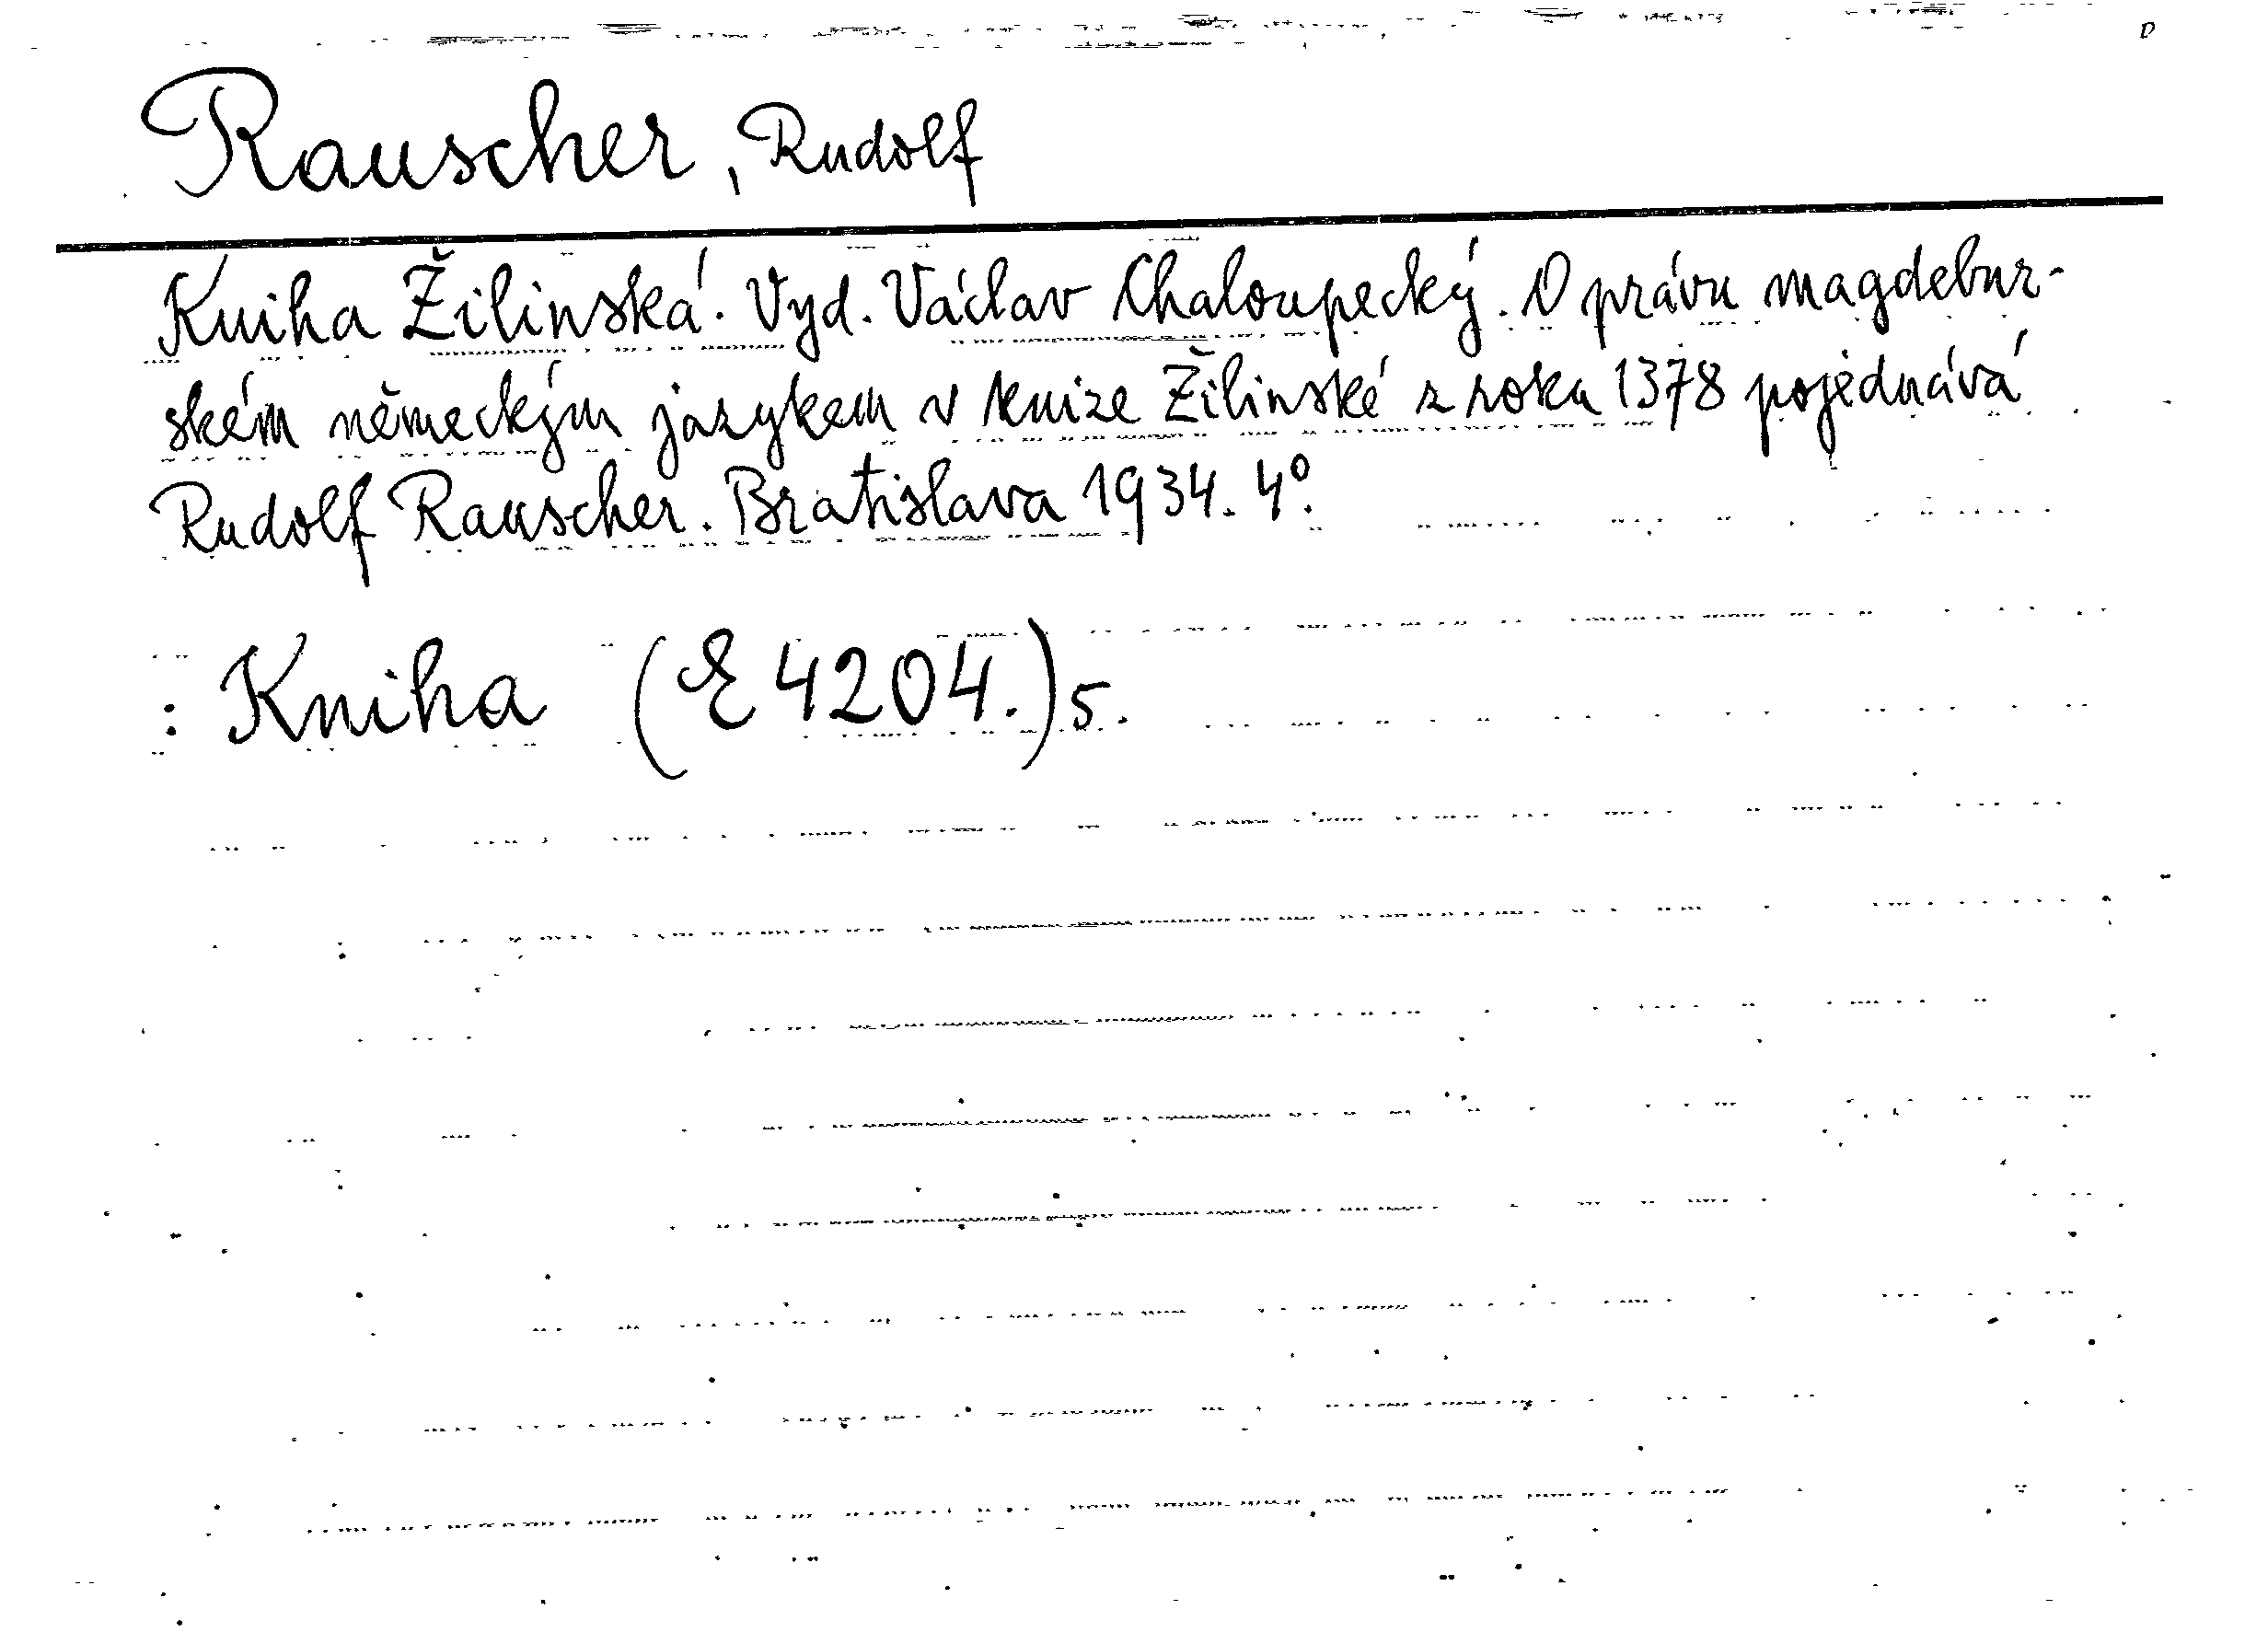 Rauscher, Rudolf
Kniha Žilinská. Vyd. Václav Chaloupecký. O právu magdebur-
ském německým jazykem v knize Žilinské z roku 1378 pojednává
Rudolf Rauscher. Bratislava 1934. 4°.
: Kniha (E 4204.) 5.